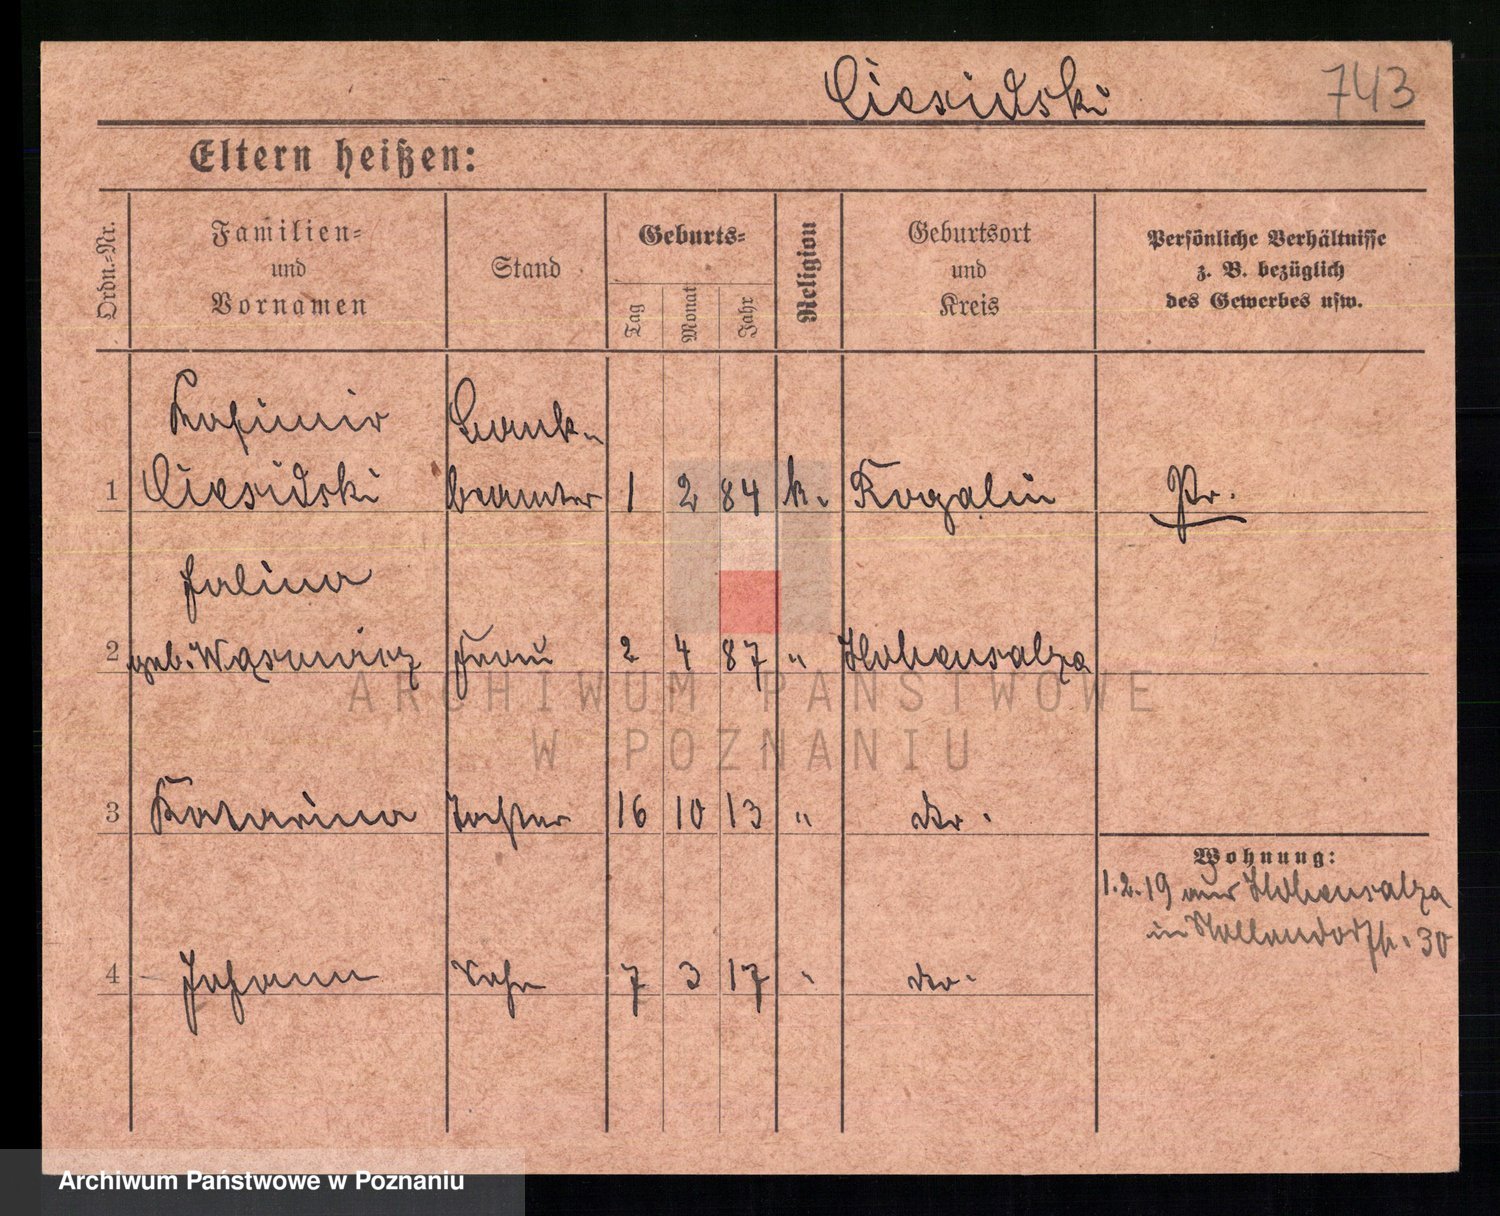 Ciesidski 743
Eltern heißen:
Ordn.-Nr.
Familien-
und
Vornamen
Stand
Geburts-
Tag
Monat
Jahr
Religion
Geburtsort
und
Kreis
Persönliche Verhältnisse
z. B. bezüglich
des Gewerbes usw.
Kasimir Bank-
1 Ciesidski beamter 1 2 84 k. Rogalin Pr.
Halina
2 geb. Frau 2 4 87 " Hohensalza
3 Katarina Tochter 16 10 13 " do.
Wohnung:
1.2.19 aus Hohensalza
in Nollendorfstr. 30
4 Johann Sohn 7 3 17 " do.
ARCHIWUM PAŃSTWOWE
W POZNANIU
Archiwum Państwowe w Poznaniu